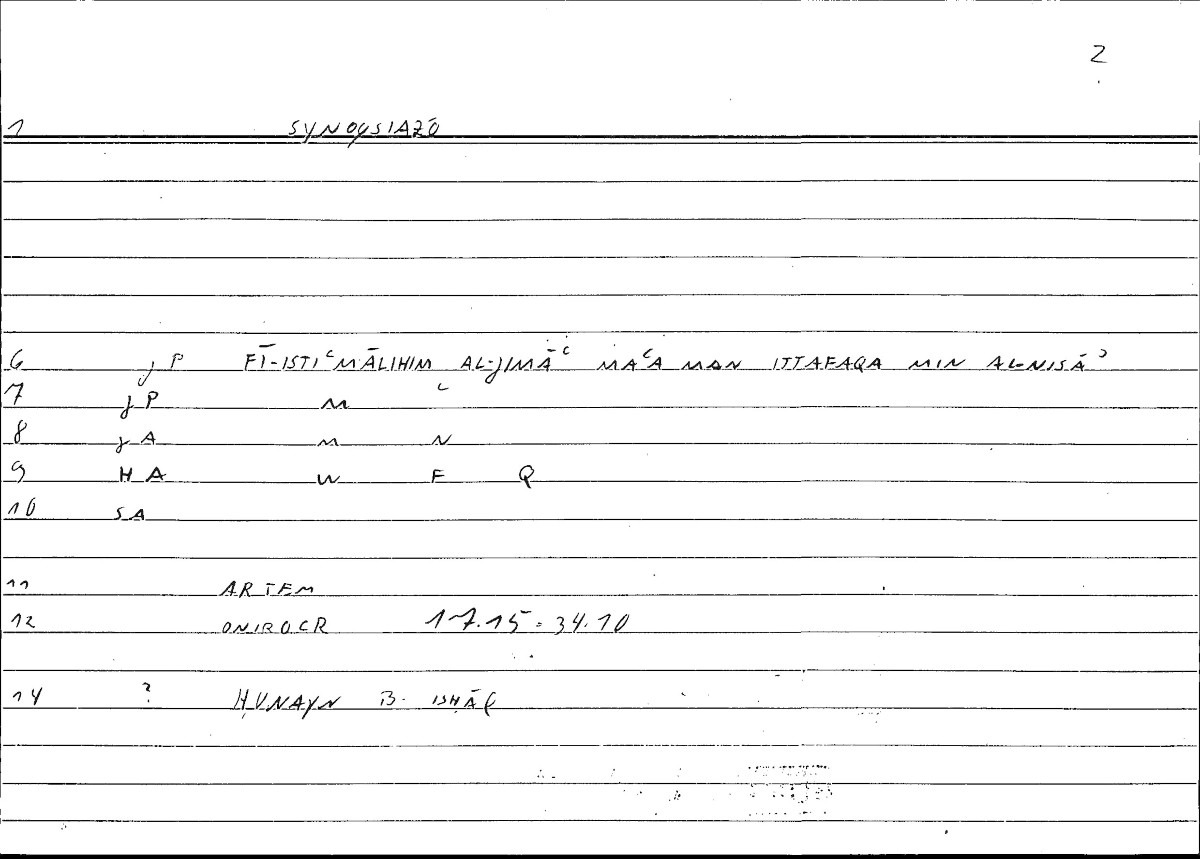 2
1 SYNOUSIAZŌ
6 j P FĪ-ISTIʿMĀLIHIM AL-JIMĀʿ MAʿA MAN ITTAFAQA MIN AL-NISĀʾ
7 j P M ʿ
8 j A M N
9 H A W F Q
10 S A
11 ARTEM
12 ONIROCR 17.15 = 34.10
14 ? ḤUNAYN B. ISḤĀQ